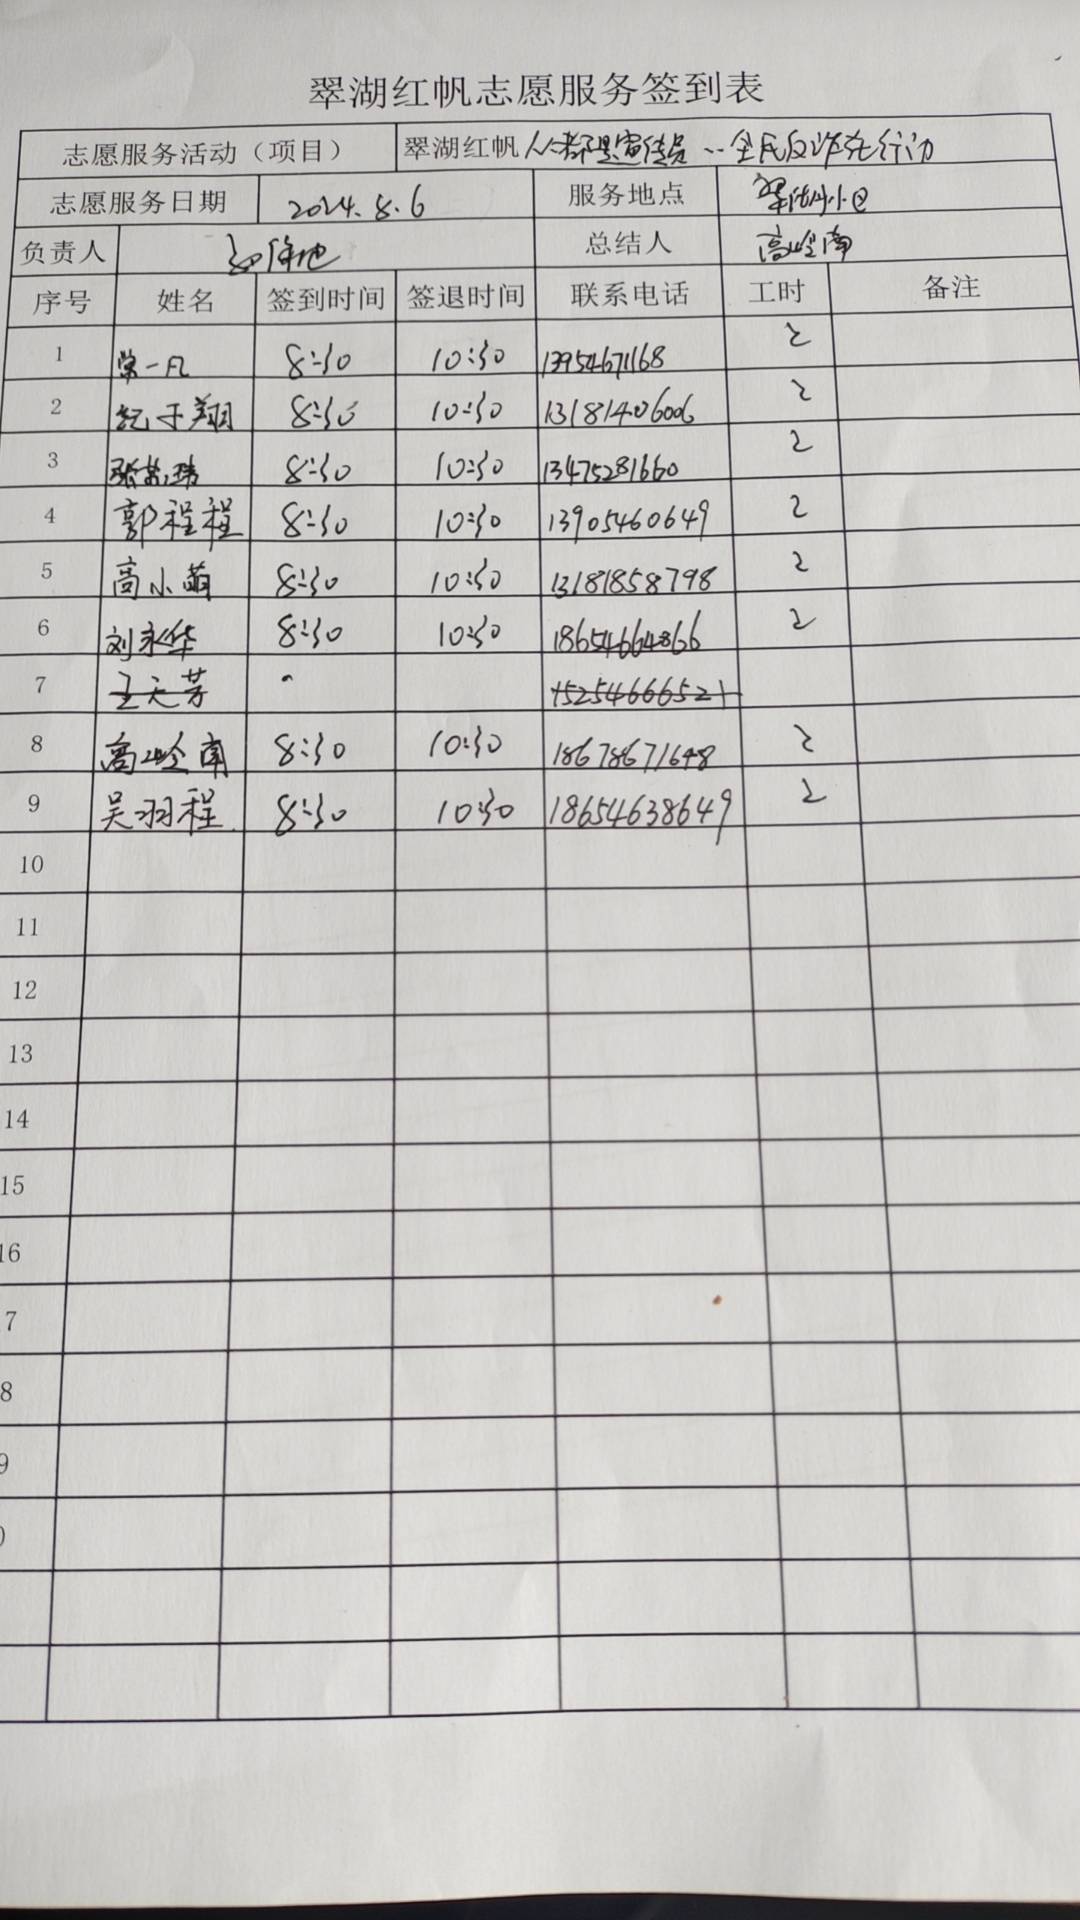 翠湖红帆志愿服务签到表
志愿服务活动（项目） 翠湖红帆人人都是宣传员--全民反诈在行动
志愿服务日期 2024.8.6 服务地点 小区
负责人 总结人 高岭南
序号 姓名 签到时间 签退时间 联系电话 工时 备注
1 一凡 8:30 10:30 13954671168 2
2 纪子翔 8:30 10:30 13181406006 2
3 张 8:30 10:30 13475281660 2
4 郭程程 8:30 10:30 13905460649 2
5 高小萌 8:30 10:30 13181858798 2
6 刘永华 8:30 10:30 18654664866 2
7 王天芳 15254666521
8 高岭南 8:30 10:30 18678671648 2
9 吴羽程 8:30 10:30 18654638649 2
10
11
12
13
14
15
16
7
8
9
0